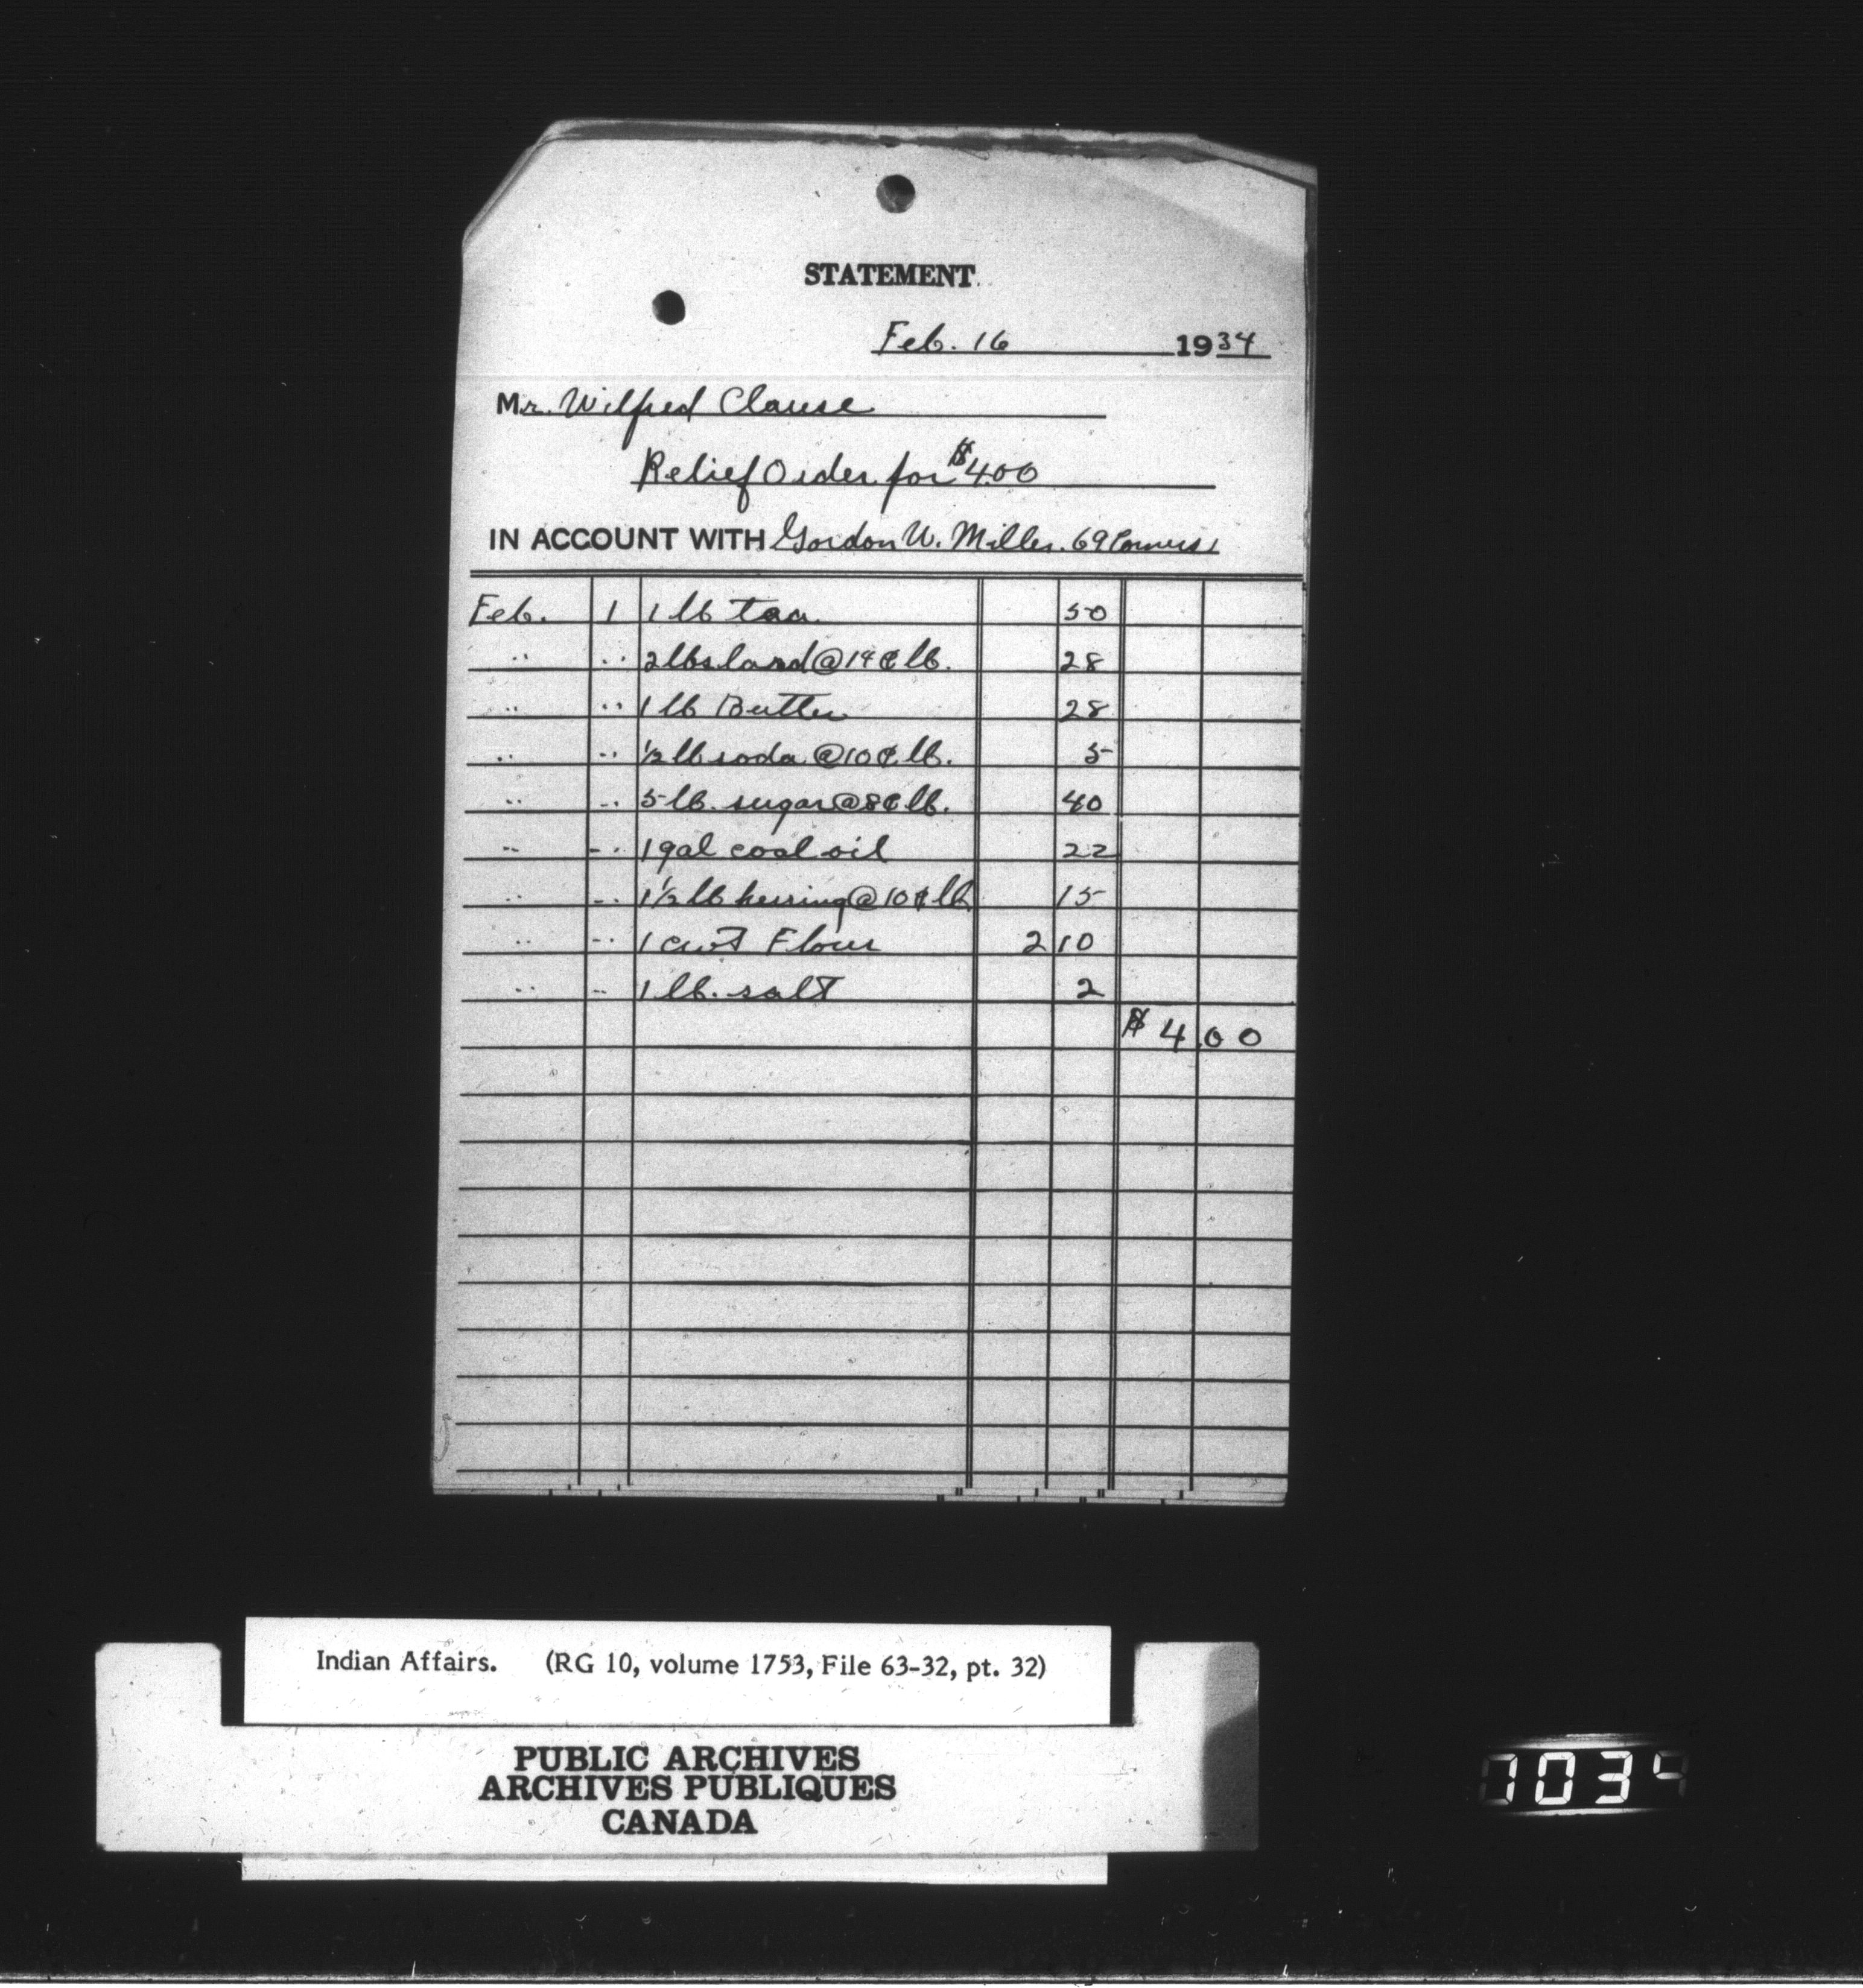 STATEMENT
Feb. 16 1934
Mr. Wilfred Clause
Relief Order for $4.00
IN ACCOUNT WITH Gordon W. Miller. 69 Corners
Feb. 1 1 lb tea 50
" " 2 lbs lard @ 14¢ lb. 28
" " 1 lb Butter 28
" " ½ lb soda @ 10¢ lb. 5
" " 5 lb. sugar @ 8¢ lb. 40
" " 1 gal coal oil 22
" " 1½ lb herring @ 10¢ lb 15
" " 1 cwt Flour 2 10
" " 1 lb. salt 2
$4.00
Indian Affairs. (RG 10, volume 1753, File 63-32, pt. 32)
PUBLIC ARCHIVES
ARCHIVES PUBLIQUES
CANADA
1034